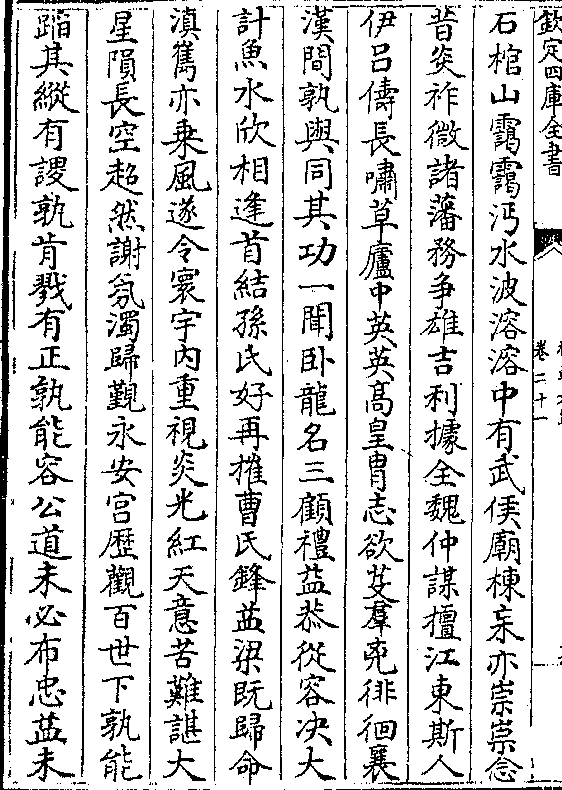 欽定四庫全書
卷二十一
石棺山靄靄沔水波溶溶中有武侯廟棟宇亦崇崇念
昔炎祚微諸藩務争雄吉利據全魏仲謀擅江東斯人
伊吕儔長嘯草廬中英英髙皇胄志欲芟羣兇徘徊襄
漢間孰與同其功一聞卧龍名三顧禮益恭從容决大
計魚水欣相逢首結孫氏好再摧曹氏鋒益梁既歸命
滇嶲亦乗風遂令寰宇内重視炎光紅天意苦難諶大
星隕長空超然謝氛濁歸覲永安宫歴觀百世下孰能
蹈其縱有謖孰肯戮有正孰能容公道未必布忠益未